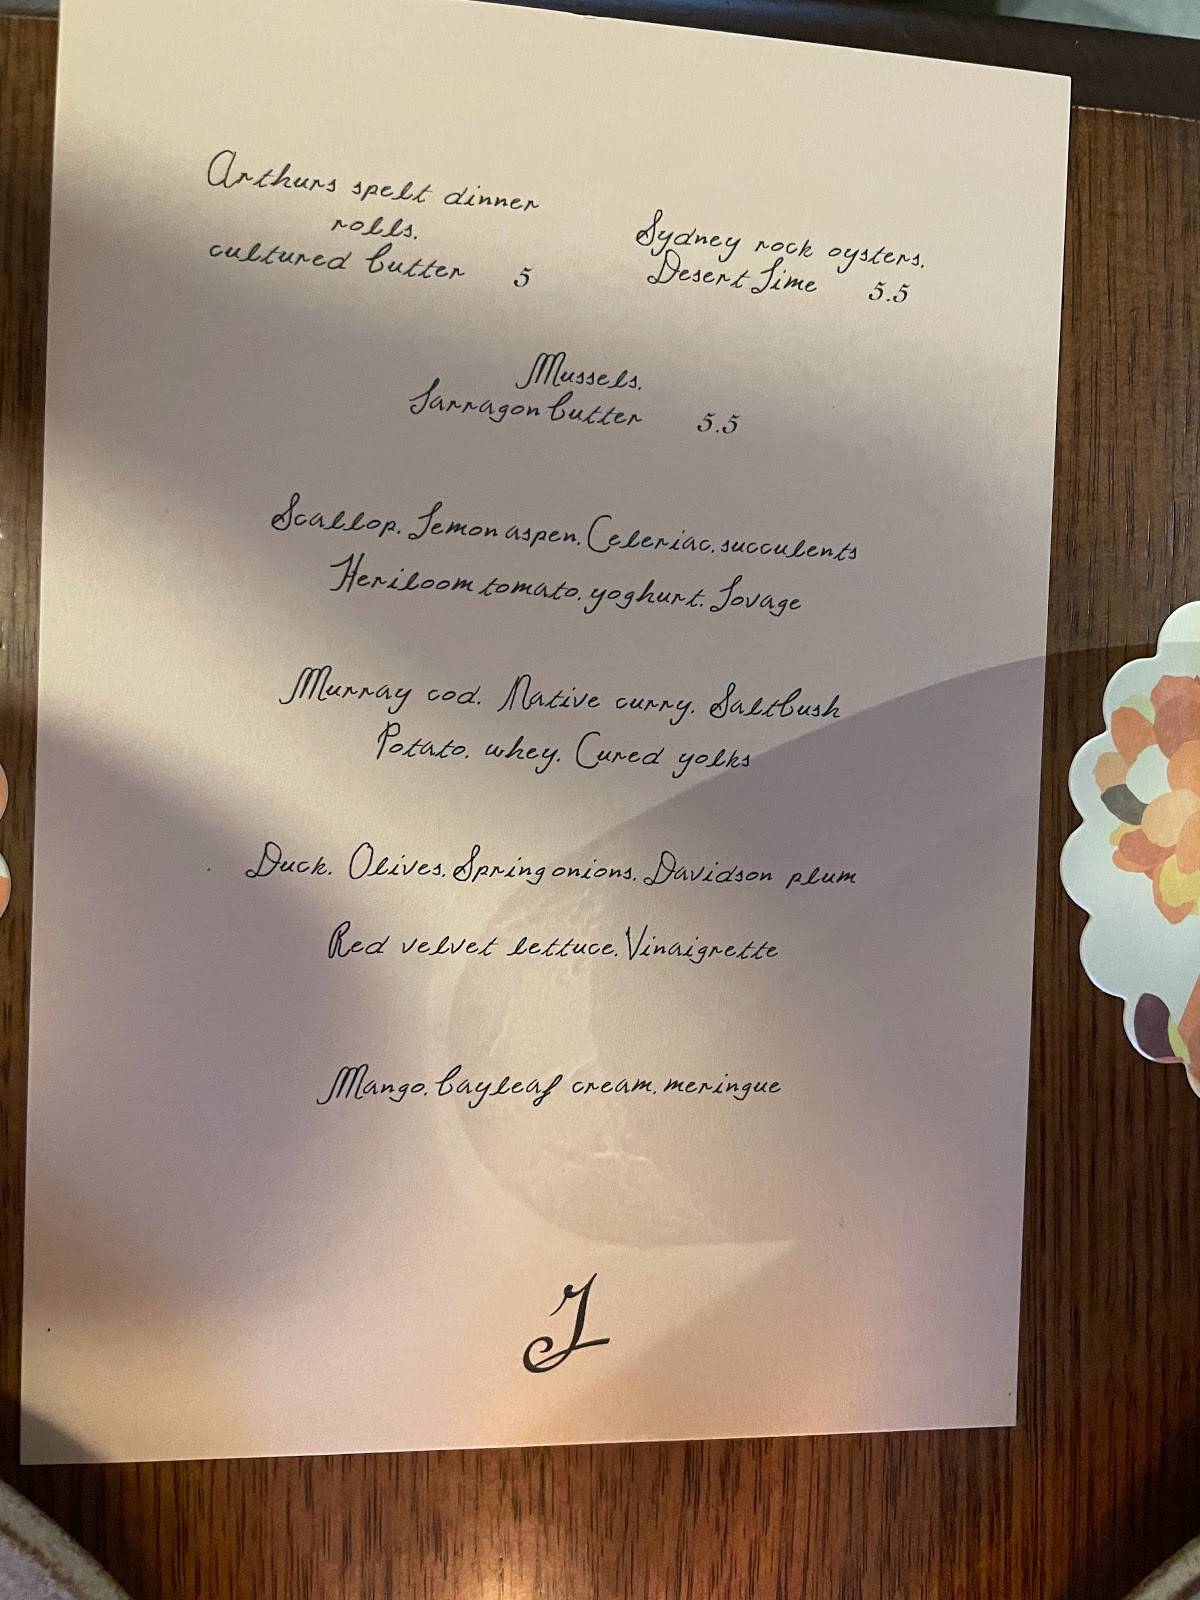 Arthurs spelt dinner
rolls.
cultured butter 5
Sydney rock oysters.
Desert Lime 5.5
Mussels.
Tarragon butter 5.5
Scallop. Lemon aspen. Celeriac. succulents
Heriloom tomato. yoghurt. Lovage
Murray cod. Native curry. Saltbush
Potato. whey. Cured yolks
Duck. Olives. Spring onions. Davidson plum
Red velvet lettuce. Vinaigrette
Mango. bayleaf cream. meringue